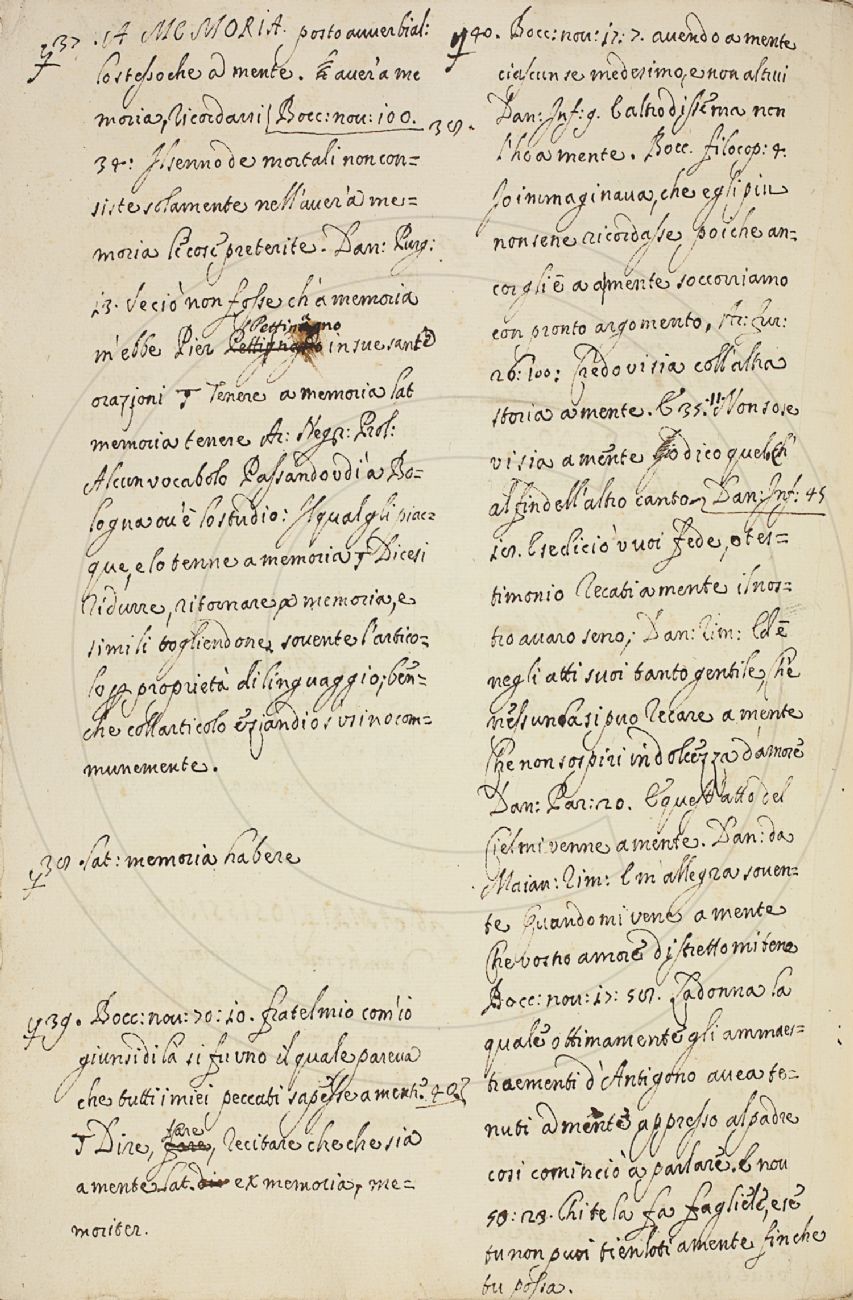 37 . A MEMORIA. posto avverbial:
lo stesso che a mente. aver a me
moria, ricordarsi Bocc: nov: 100.
34: Il senno de mortali non con=
siste solamente nell'aver à me=
moria le cose preterite. Dan: Purg:
13. Se ciò non fosse ch'a memoria
Pettinagno
m'ebbe Pier in sue sante
orazioni Tenere a memoria lat
memoria tenere Ar: Negr: Prol:
Alcun vocabolo Passando udì a Bo=
logna ov'è lo studio: Il qual gli piac=
que, e lo tenne a memoria Dicesi
ridurre, ritornare a memoria, e
simili togliendone, sovente l'artico=
lo proprietà di linguaggio; ben=
che coll'articolo eziandio s'usino com=
munemente.
38 . lat: memoria habere
39. Bocc: nov: 70: 10. fratel mio com'io
giunsi di la si fu uno il quale pareva
che tutti i miei peccati sapesse a mente. 40
Dire, fare, recitare che che sia
a mente lat. ex memoria, me=
moriter.
40. Bocc: nov: 17: 7. avendo a mente
ciascun se medesimo, e non altrui
38. Dan: Inf: 9. E altro disse ma non
l'ho a mente. Bocc. filocop: 4.
Io immaginava, che egli piu
non sene ricordasse, poiche an=
cor gli è a mente soccorriamo
con pronto argomento, Ar: fur:
26: 100: Credo vi sia coll'altra
storia a mente. E 35: 11 Non so se
vi sia a mente Io dico quel ch'
al fin dell'altro canto Dan: Inf: 45
18. E se di ciò vuoi fede, o tes=
timonio Recati a mente il nos=
tro avaro seno; Dan: rim: Ed è
negli atti suoi tanto gentile, Che
nessun la si puo recare a mente
Che non sospiri in dolcezza d'amore
Dan: Par: 20. E quest'atto del
Ciel mi venne a mente. Dan: da
Maian: Rim: E m'allegra soven=
te Quando mi vene a mente
Che vostro amore distretto mi tene
Bocc: nov: 17: 58. La donna la
quale ottimamente gli ammaes=
traementi d'Antigono avea te=
nuti a mente appresso al padre
cosi cominciò a parlare. E nov
58: 28. Chi te la fa fagliele, e se
tu non puoi tienloti a mente finche
tu possa.